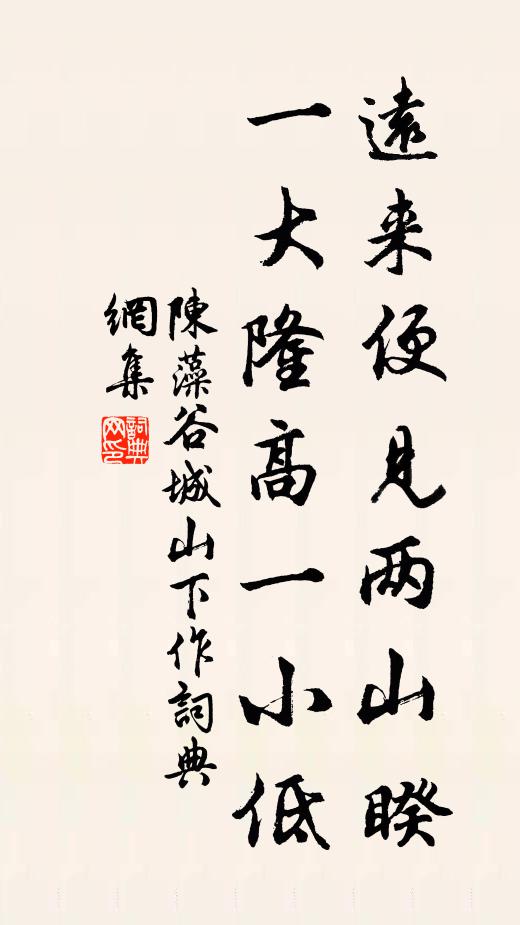 遠来便見两山睽
一大隆高一小低
陳藻谷城山下作詞典
網集
詞典
网印